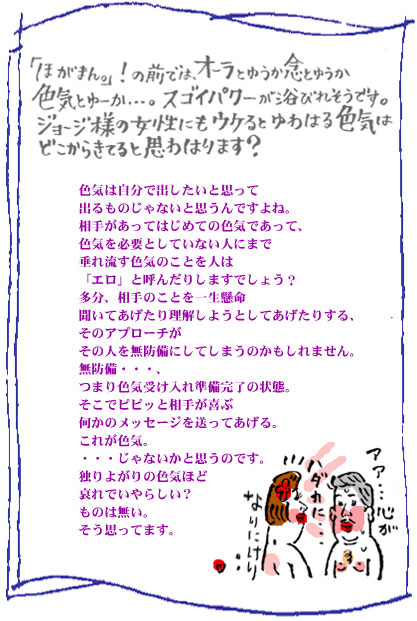 「ほがまん。」！の前では、オーラとゆうか念とゆうか
色気とゆーか…。スゴイパワーが浴びれそうです。
ジョージ様の女性にもウケるとゆわはる色気は
どこからきてると思わはります？
色気は自分で出したいと思って
出るものじゃないと思うんですよね。
相手があってはじめての色気であって、
色気を必要としていない人にまで
垂れ流す色気のことを人は
「エロ」と呼んだりしますでしょう？
多分、相手のことを一生懸命
聞いてあげたり理解しようとしてあげたりする、
そのアプローチが
その人を無防備にしてしまうのかもしれません。
無防備・・・、
つまり色気受け入れ準備完了の状態。
そこでピピッと相手が喜ぶ
何かのメッセージを送ってあげる。
これが色気。
・・・じゃないかと思うのです。
独りよがりの色気ほど
哀れでいやらしい？
ものは無い。
そう思ってます。
アア…心が
ハダカに…
なりにけり